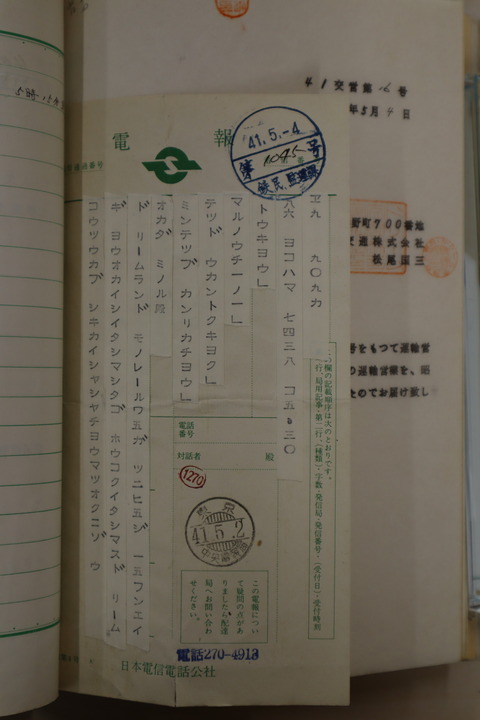 41交営第16号
年5月4日
野町700番地
交通株式会社
松尾国三
号をもつて運輸営
の運輸営業を、
たのでお届け致し
電報
41.5.-4
第1045号
この欄の記載順序は次のとおりです。
九〇九カ
八六 ヨコハマ 七四三八 コ五、三〇
トウキヨウ」
マルノウチ一ノ一」
テツド ウカントクキヨク」
ミンテツブ カンリカチヨウ」
オカダ ミノル殿
ド リームランド モノレールワ五ガ ツ二ヒ五ジ 一五フンエイ
ギ ヨウオカイシイタシマシタゴ ホウコクイタシマスド リーム
コウツウカブ シキカイシヤシヤチヨウマツオクニゾ ウ
電話番号
対話者 殿
1270
東京
41.5.2
この電報につい
て疑問の点があ
りましたら配達
局へお問い合わ
せください。
電話270-4913
日本電信電話公社